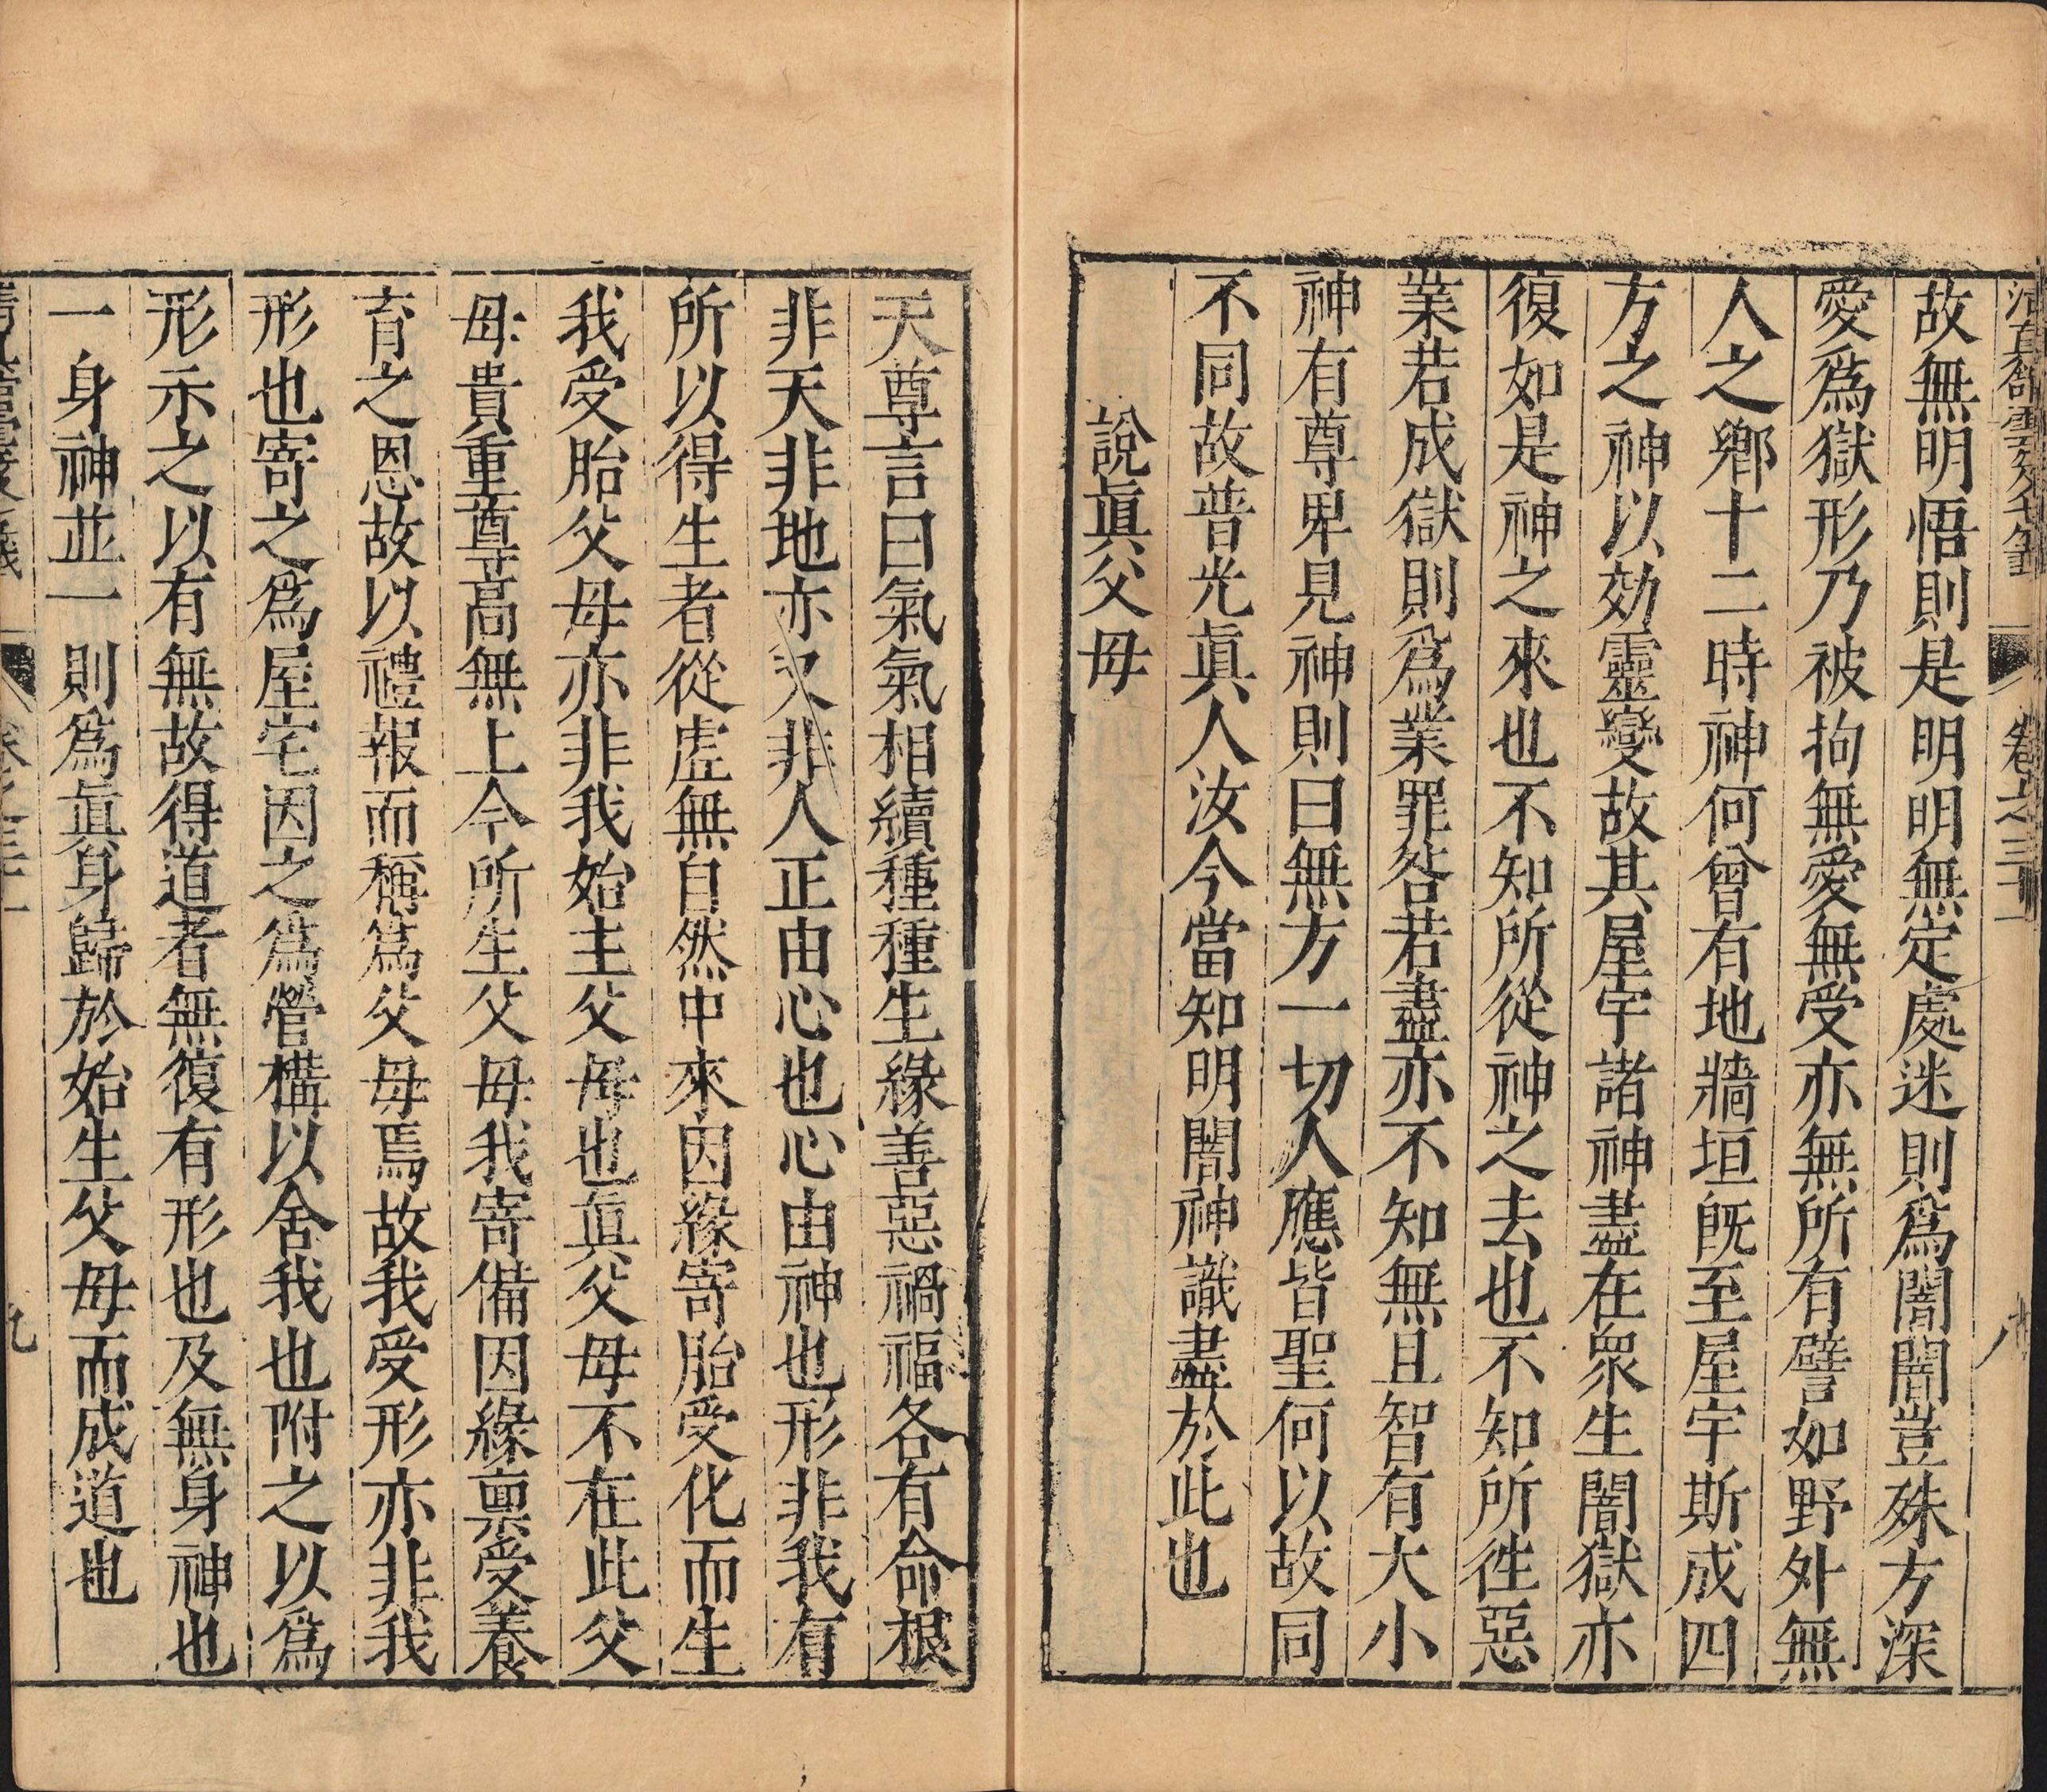 卷之三十一
故無明悟則是明明無定處迷則爲闇闇豈殊方深
愛爲獄形乃被拘無愛無受亦無所有譬如野外無
人之鄉十二時神何曾有地牆垣旣至屋宇斯成四
方之神以効靈變故其屋宇諸神盡在衆生闇獄亦
復如是神之來也不知所從神之去也不知所徃惡
業若成獄則爲業罪咎若盡亦不知無且智有大小
神有尊卑見神則曰無方一切人應皆聖何以故同
不同故普光眞人汝今當知明闇神識盡於此也
說眞父母
天尊言曰氣氣相續種種生緣善惡禍福各有命根
非天非地亦又非人正由心也心由神也形非我有
所以得生者從虛無自然中來因緣寄胎受化而生
我受胎父母亦非我始主父母也眞父母不在此父
母貴重尊高無上今所生父母我寄備因緣禀受養
育之恩故以禮報而稱爲父母焉故我受形亦非我
形也寄之爲屋宅因之爲營構以舍我也附之以爲
形示之以有無故得道者無復有形也及無身神也
一身神並一則爲眞身歸於始生父母而成道也
九